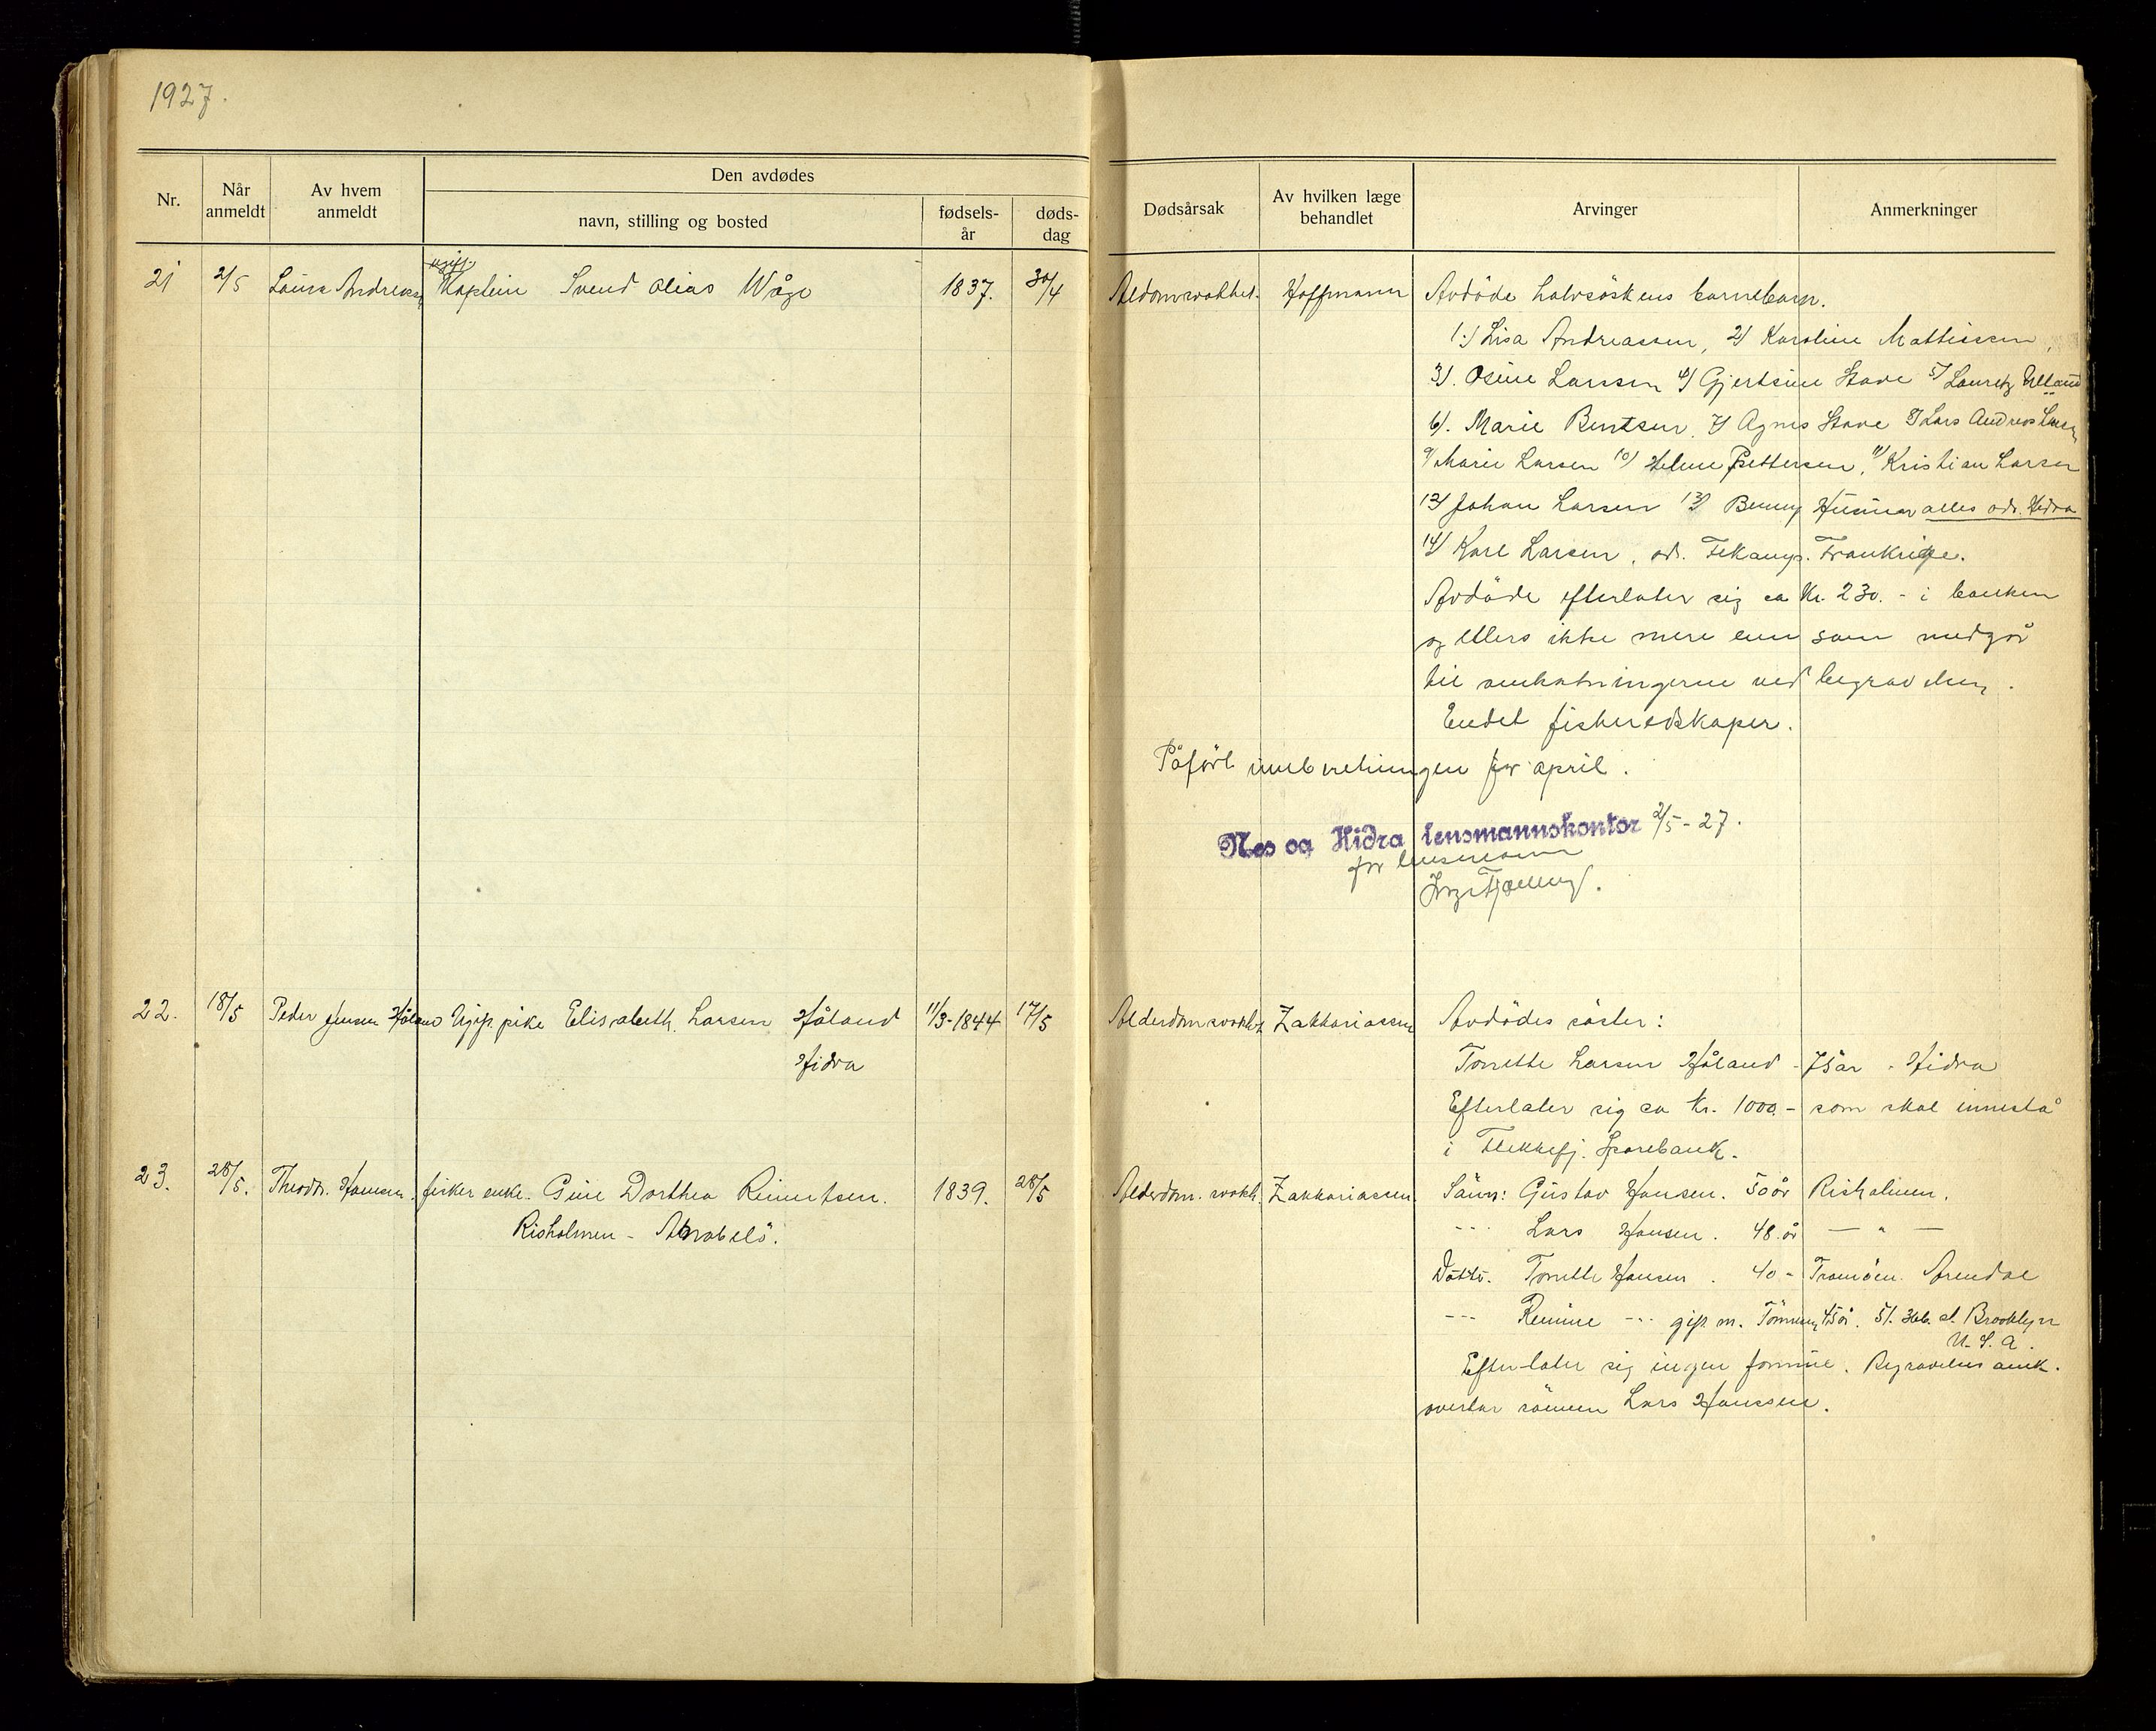 1927.
Nr.
Når anmeldt
Av hvem anmeldt
Den avdødes
navn, stilling og bosted
fødsels-år
døds-dag
Dødsårsak
Av hvilken læge behandlet
Arvinger
Anmerkninger
ugift
21 2/5 Andreas Kaptein Svend Olias Wåge 1837. 30/4 Hoffmann Avdöde halvsöskens barnebarn.
1.) Lisa Andreassen, 2) Karoline Mattissen,
3). Osine Larsen 4) Gjertsine Stave 5) Lauretz
6). Marie Bentsen. 7) Agnes Stave 8) Lars Andreas
9) Marie Larsen 10) Helene Pettersen, 11) Kristian Larsen
12) Johan Larsen 13) Benny alles adr. Hidra
14) Karl Larsen, adr. Fekamp. Frankrige.
Avdöde efterlater sig ca Kr. 230.- i banken
og ellers ikke mere enn som medgår
til omkostningerne ved begravelsen.
Endel fiskeredskaper.
Påført innberetningen for april.
Nes og Hidra lensmannskontor 2/5-27.
for lensmann
22. 18/5 Peder Jensen Håland Ugift pike Elisabeth Larsen Håland 11/3-1844 17/5 Alderdomsvakh. Zakkariassen Avdödes söster:
Hidra
Tonette Larsen Håland - 75 år - Hidra
Efterlater sig ca Kr. 1000.- som skal innestå
i Flekkefj. Sparebank.
23. 28/5. Theodor Hansen. fisker enke. Gine Dorthea Reinertsen. 1839. 28/5 Alderdom.svakh. Zakkariassen. Sönn: Gustav Hansen. 50 år Risholmen.
Risholmen - Anabelö.
--- Lars Hansen. 48 år — " —
Datter. Tonette Hansen. 40 - Tromöen. Arendal
--- Remine --- gift m. 45 år. 51. 36th. st. Brooklyn
U.S.A.
Efterlater sig ingen formue. Begravelses omk.
overtar sönnen Lars Hanssen.